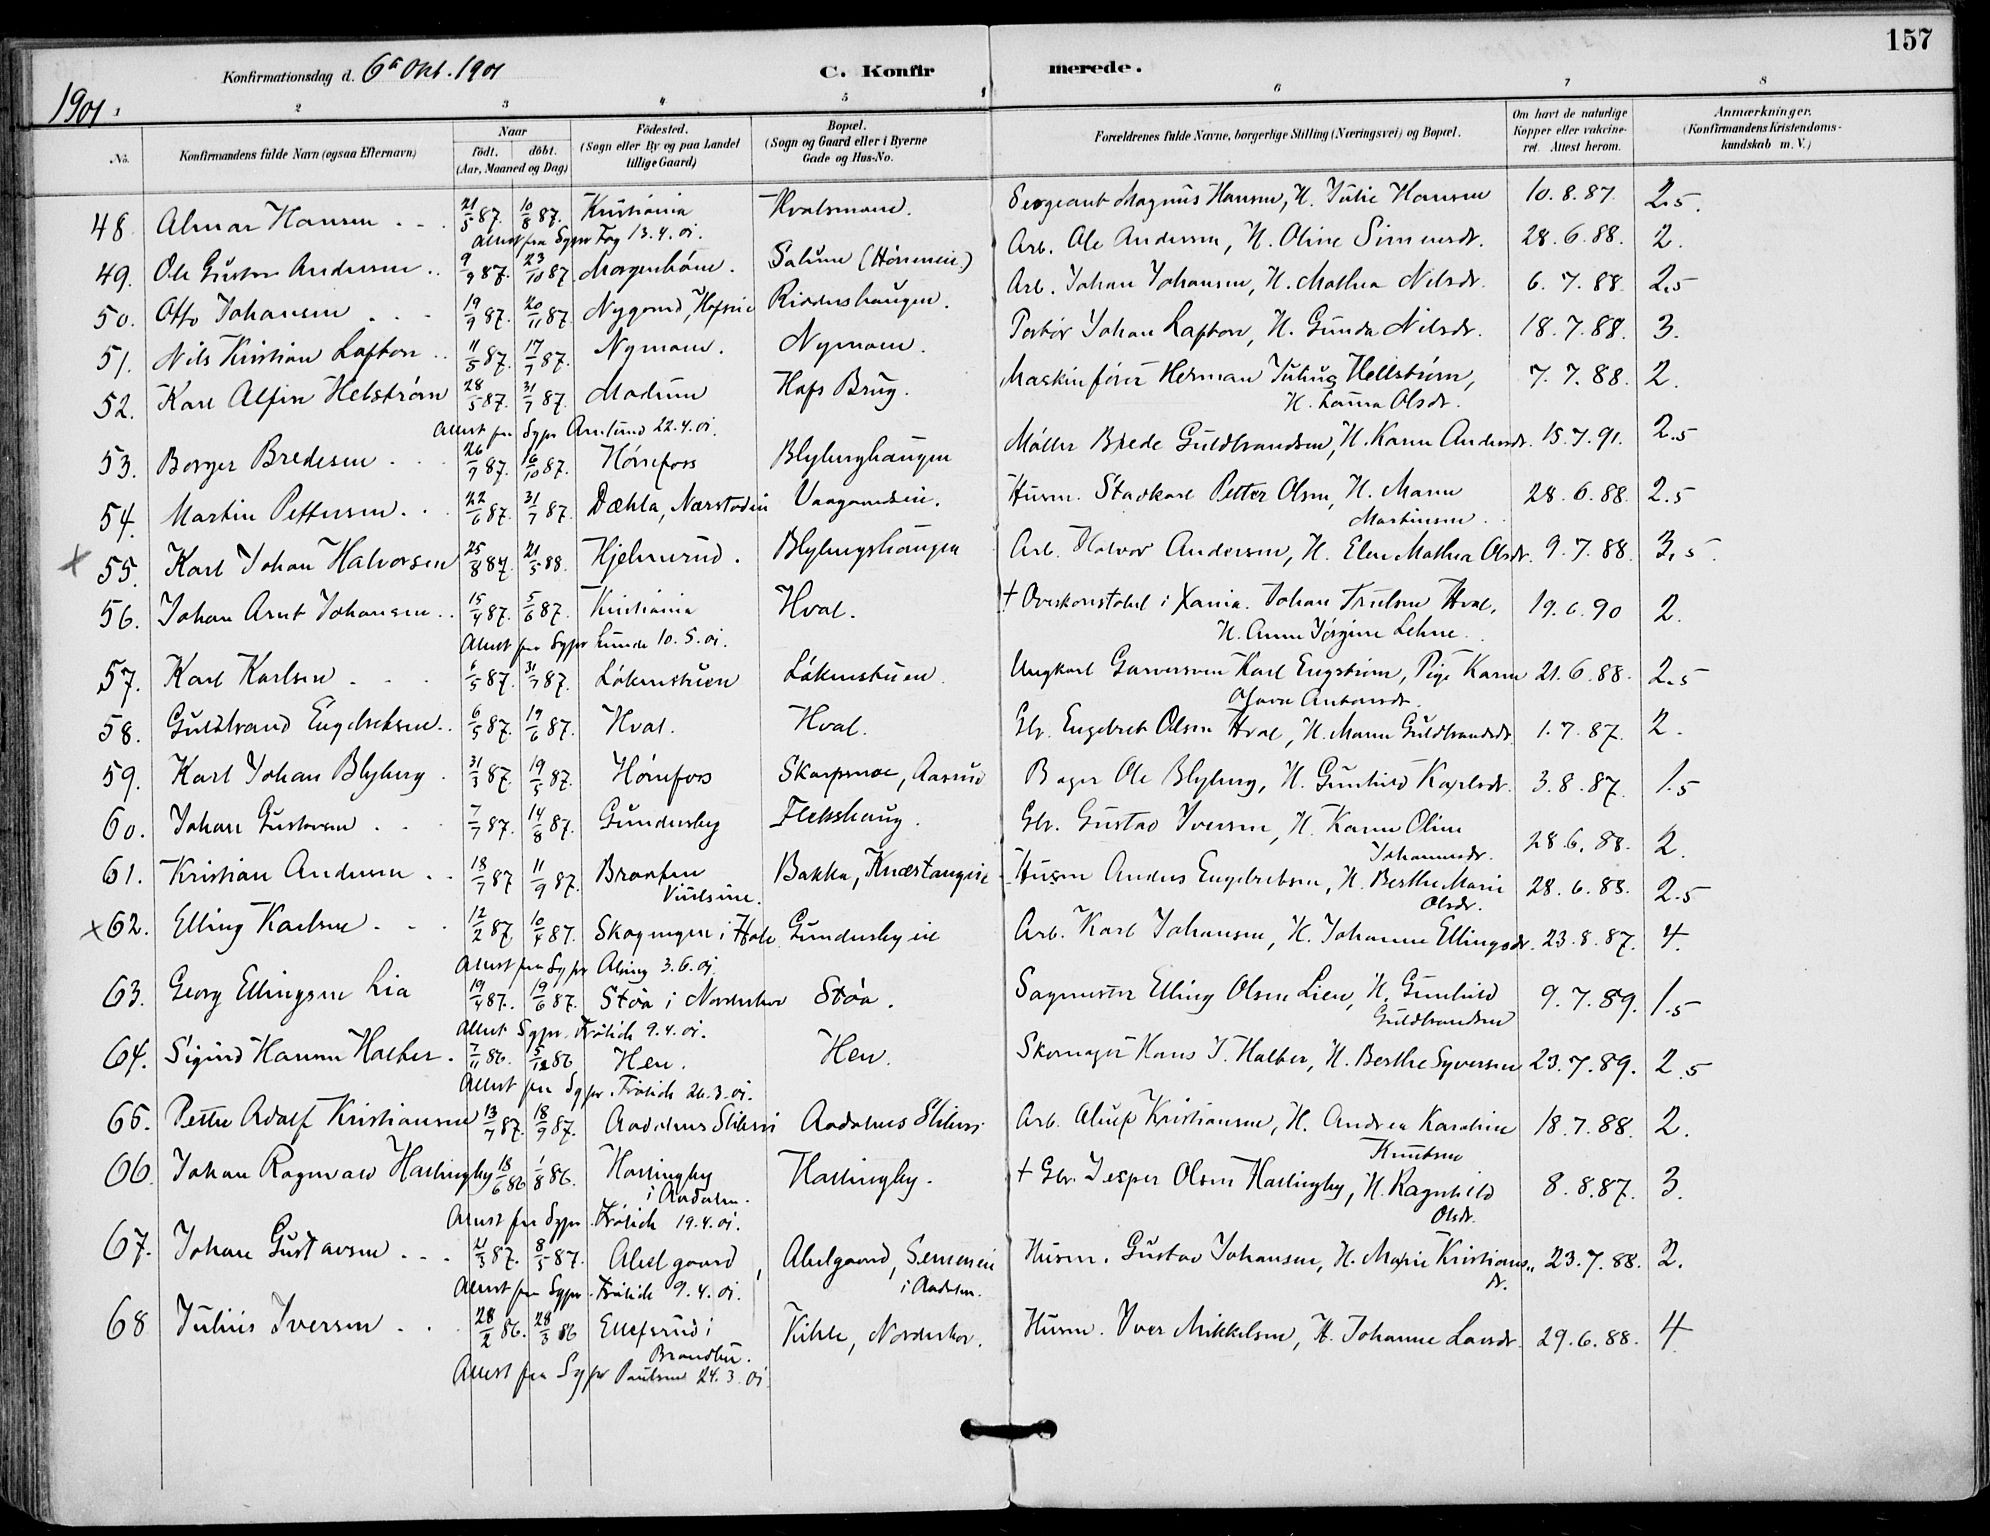 157
Konfirmationsdag d. 6te Okt. 1901
C. Konfirmerede.
1901
1 2 3 4 5 6 7 8
No. Konfirmandens fulde Navn (ogsaa Efternavn) Naar födt. döbt. (Aar, Maaned og Dag) Födested. (Sogn eller By og paa Landet tillige Gaard) Bopæl. (Sogn og Gaard eller i Byerne Gade og Hus-No. Forældrenes fulde Navne, borgerlige Stilling (Næringsvei) og Bopæl. Om havt de naturlige Kopper eller vakcineret. Attest herom. Anmærkninger. (Konfirmandens Kristendomskundskab m. V.)
48. Almar Hansen 21/5 87. 10/8 87. Kristiania Hvalsmoen. Sergeant Magnus Hansen, H. Julie Hansen 10.8.87. 2.5.
Attest fra Sgpr Fog 13.4.01.
49. Ole Gustav Andersen 9/9 87. 23/10 87 Morgenhöen. Solum (Hönenei) Arb. Ole Andersen, H. Oline Simensdr. 28.6.88. 2.
50. Otto Johansen 19/9 87. 20/11 87. Nygaard, Hofseie Riddershaugen. Arb. Johan Johansen, H. Mathea Nilsdr. 6.7.88. 2.5
51. Nils Kristian Lafton 11/5 87. 17/7 87. Nymoen. Nymoen. Portör Johan Lafton, H. Gunda Nilsdr. 18.7.88. 3.
52. Karl Alfin Helström 28/5 87. 31/7 87. Modum Hofs Brug. Maskinförer Herman Julius Hellström, 7.7.88. 2.
H. Laura Olsdr.
Attest fra Sgpr 22.4.01.
53. Borger Bredesen 26/9 87. 16/10 87. Hönefoss Blyberghaugen Möller Brede Guldbrandsen, H. Karen Andersdr. 15.7.91. 2.5
54. Martin Pettersen 22/6 87. 31/7 87. Dæhla, Nærstadeie Vaagaardseie. Husm. Stadkarl Petter Olsen, H. Maren 28.6.88. 2.5
Martinsen.
x 55. Karl Johan Halvorsen 25/8 87. 21/5 88. Hjelmerud. Blybergshaugen Arb. Halvor Andersen, H. Elen Mathea Olsdr. 9.7.88. 3.5.
56. Johan Arnt Johansen 15/4 87. 5/6 87. Kristiania Hval. † Overkonstabel i Xania. Johan Trulsen Hval, 19.6.90 2.
H. Anne Jörgine Lehne.
Attest fra Sgpr Lunde 10.5.01.
57. Karl Karlsen 6/5 87. 31/7 87. Lökenstuen Lökenstuen. Ungkarl Garversven Karl Engström, Pige Karen 21.6.88. 2.5
Olava Antonsdr.
58. Guldbrand Engebretsen 6/5 87. 19/6 87. Hval. Hval. Gbr. Engebret Olsen Hval, H. Maren Guldbrandsdr. 1.7.87. 2.
59. Karl Johan Blyberg 31/3 87. 19/5 87. Hönefoss Skarpsnoe, Aasrud Bager Ole Blyberg, H. Gunhild Karlsdr. 3.8.87. 1.5
60. Johan Gustavsen 7/7 87. 14/8 87. Gundersby Flekshaug. Gbr. Gustav Iversen, H. Karen Oline 28.6.88. 2.
Johannesdr.
61. Kristian Andersen 18/7 87 11/9 87. Braaten Bakka, Knæstangeie Husm Anders Engebretsen, H. Berthe Marie 28.6.88. 2.5
Olsdr.
x 62. Elling Karlsen 12/2 87 10/4 87. Skogengen i Hole Gundersbyeie Arb. Karl Johansen, H. Johanne Ellingsdr. 23.8.87. 4.
Attest fra Sgpr 3.6.01.
63. Georg Ellingsen Lia 19/4 87. 19/6 87. Stöa i Norderhov Stöa. Sagmester Elling Olsen Lien, H. Gunhild 9.7.89. 1.5
Guldbrandsen
Attest Sgpr. Frölich 9.4.01.
64. Sigurd Hansen Halber. 7/11 86. 5/12 86 Hen. Hen. Skomager Hans J. Halber, H. Berthe Syversen 23.7.89. 2.5
Attest fra Sgpr. Frölich 26.3.01.
65. Petter Adolf Kristiansen 13/7 87. 18/9 87. Aadalens Sliberi Aadalens Sliberi Arb. Kristiansen, H. Andrea Karoline 18.7.88. 2.
Knutsen
66. Johan Ragnvald Hallingby 18/6 86 1/8 86. Hallingby Hallingby. † Gbr. Jesper Olsen Hallingby, H. Ragnhild 8.8.87. 3.
i Aadalen. Olsdr.
Attest fra Sgpr. Frölich 19.4.01.
67. Johan Gustavsen 21/3 87. 8/5 87. Abelgaard, Abelgaard, Semeneie Husm. Gustav Johansen, H. Marie Kristians- 23.7.88. 2.
i Aadalen. dr.
Attest fra Sgpr. Frölich 9.4.01.
68 Julius Iversen 28/2 86. 28/3 86 Ellefsrud i Kihle, Norderhov. Husm. Iver Mikkelsen, H. Johanne Larsdr. 29.6.88. 4
Brandbu.
Attest fra Sgpr Paulsen 24.3.01.